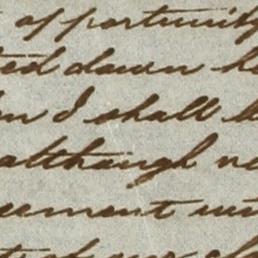 of portunity
ed down h
n I shall b
although ne
cement un